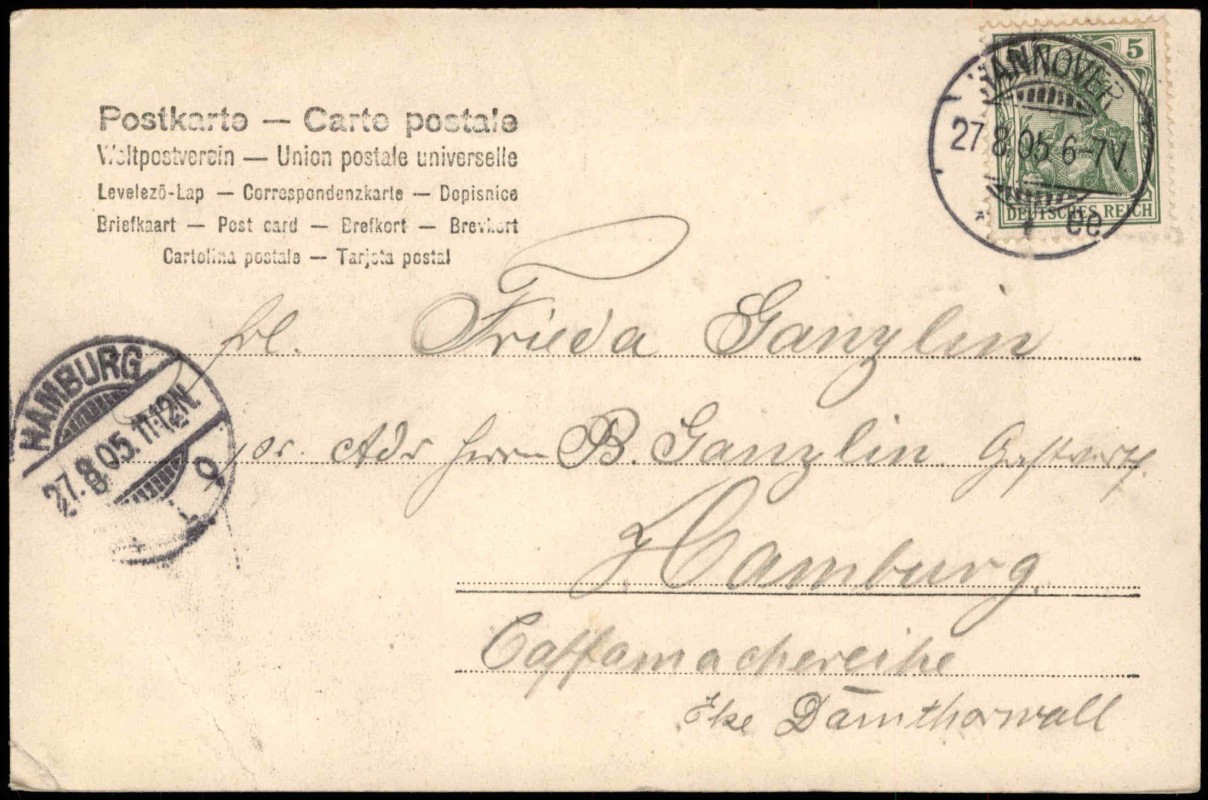 Postkarte — Carte postale
Weltpostverein — Union postale universelle
Levelező-Lap — Correspondenzkarte — Dopisnice
Briefkaart — Post card — Brefkort — Brevkort
Cartolina postale — Tarjeta postal
HANNOVER
27.8.05 6-7V
5
DEUTSCHES REICH
HAMBURG
27.8.05. 11-12N.
Frl. Frieda Ganzlin
Adr Herrn B. Ganzlin Gastwirth
Hamburg
Caffamachereihe
Eke Dámthorwall